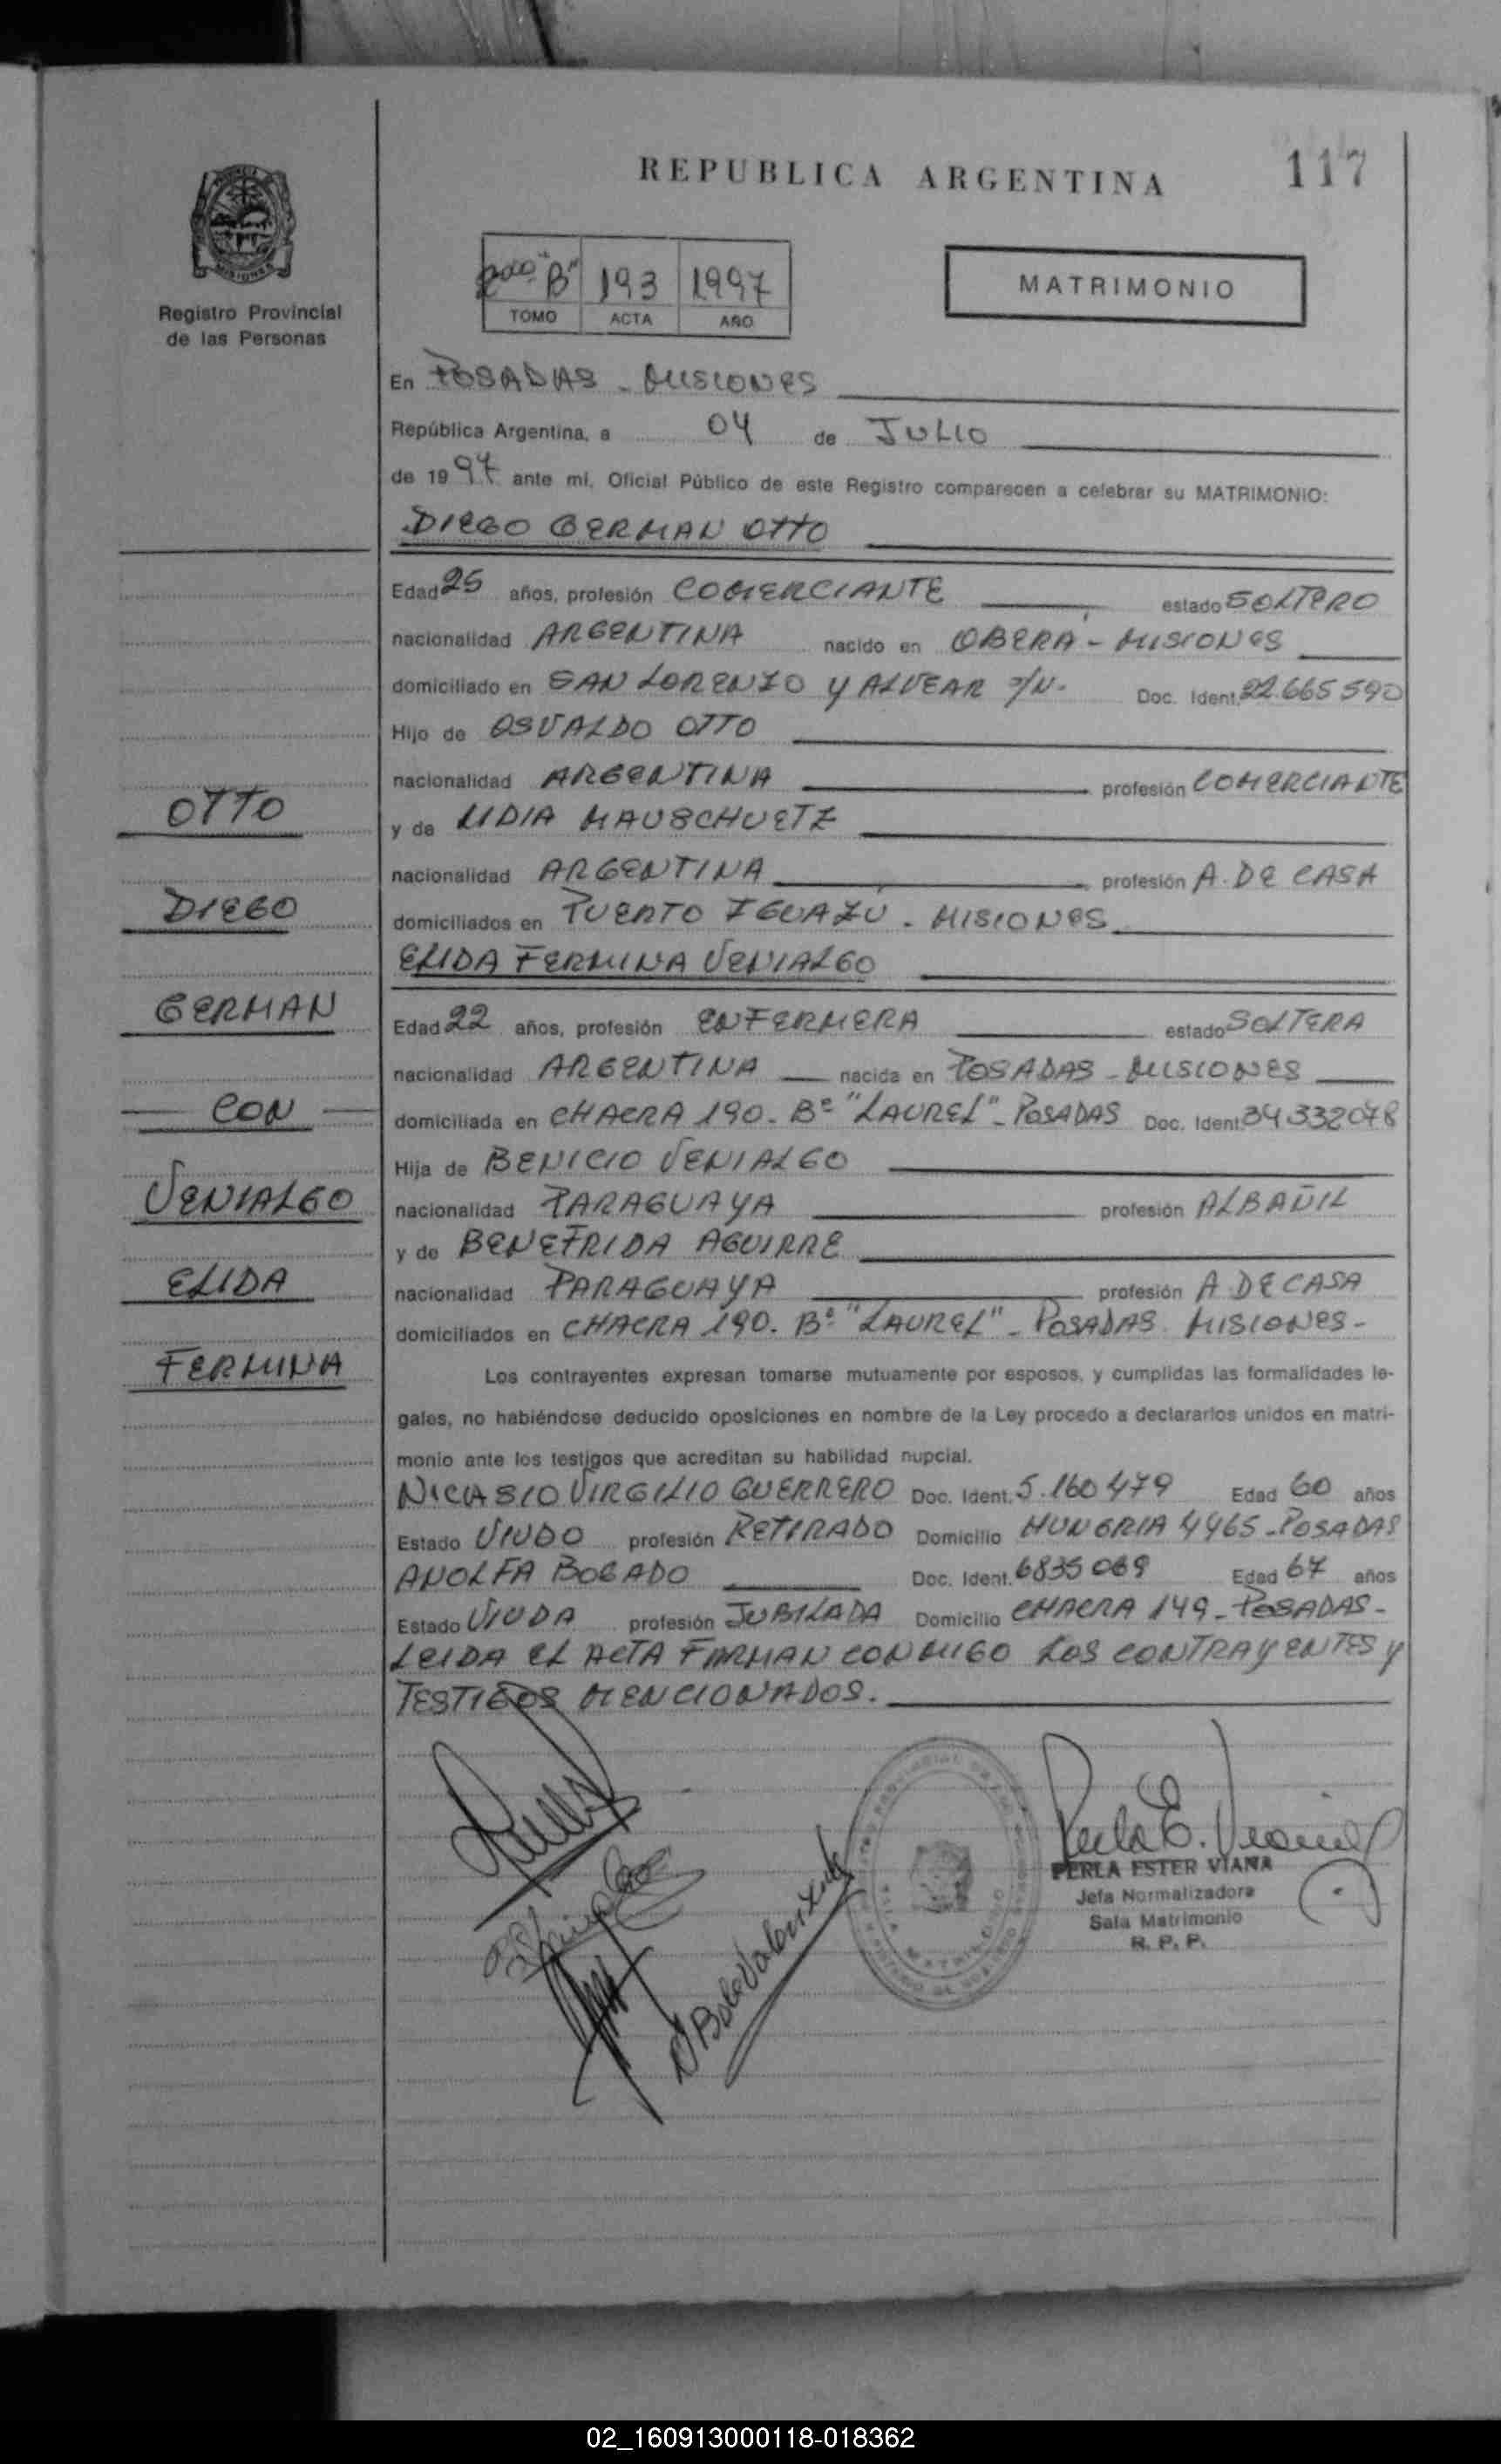 REPUBLICA ARGENTINA
117
Registro Provincial
de las Personas
"B" 193 1997
TOMO ACTA AÑO
MATRIMONIO
En POSADAS - MISIONES
República Argentina, a 04 de JULIO
de 1997 ante mi, Oficial Público de este Registro comparecen a celebrar su MATRIMONIO:
DIEGO GERMAN OTTO
Edad 25 años, profesión COMERCIANTE estado SOLTERO
nacionalidad ARGENTINA nacido en OBERA - MISIONES
domiciliado en SAN LORENZO Y ALVEAR S/N. Doc. Ident. 22.665590
Hijo de OSVALDO OTTO
nacionalidad ARGENTINA profesión COMERCIANTE
y de LIDIA MAUSCHUETZ
nacionalidad ARGENTINA profesión A. DE CASA
domiciliados en PUERTO IGUAZU - MISIONES
ELIDA FERMINA VENIALGO
Edad 22 años, profesión ENFERMERA estado SOLTERA
nacionalidad ARGENTINA nacida en POSADAS - MISIONES
domiciliada en CHACRA 190. Bº "LAUREL" - POSADAS Doc. Ident. 34332078
Hija de BENICIO VENIALGO
nacionalidad PARAGUAYA profesión ALBAÑIL
y de BENEFRIDA AGUIRRE
nacionalidad PARAGUAYA profesión A DE CASA
domiciliados en CHACRA 190. Bº "LAUREL" - POSADAS MISIONES -
Los contrayentes expresan tomarse mutuamente por esposos, y cumplidas las formalidades le-
gales, no habiéndose deducido oposiciones en nombre de la Ley procedo a declararlos unidos en matri-
monio ante los testigos que acreditan su habilidad nupcial.
NICASIO VIRGILIO GUERRERO Doc. Ident. 5.160479 Edad 60 años
Estado VIUDO profesión RETIRADO Domicilio HUNGRIA 4465 - POSADAS
ANOLFA BOGADO Doc. Ident. 6835069 Edad 67 años
Estado VIUDA profesión JUBILADA Domicilio CHACRA 149 - POSADAS -
LEIDA EL ACTA FIRMAN CONMIGO LOS CONTRAYENTES Y
TESTIGOS MENCIONADOS.
OTTO
DIEGO
GERMAN
CON
VENIALGO
ELIDA
FERMINA
Perla E. Viana
PERLA ESTER VIANA
Jefa Normalizadora
Sala Matrimonio
R. P. P.
02_160913000118-018362